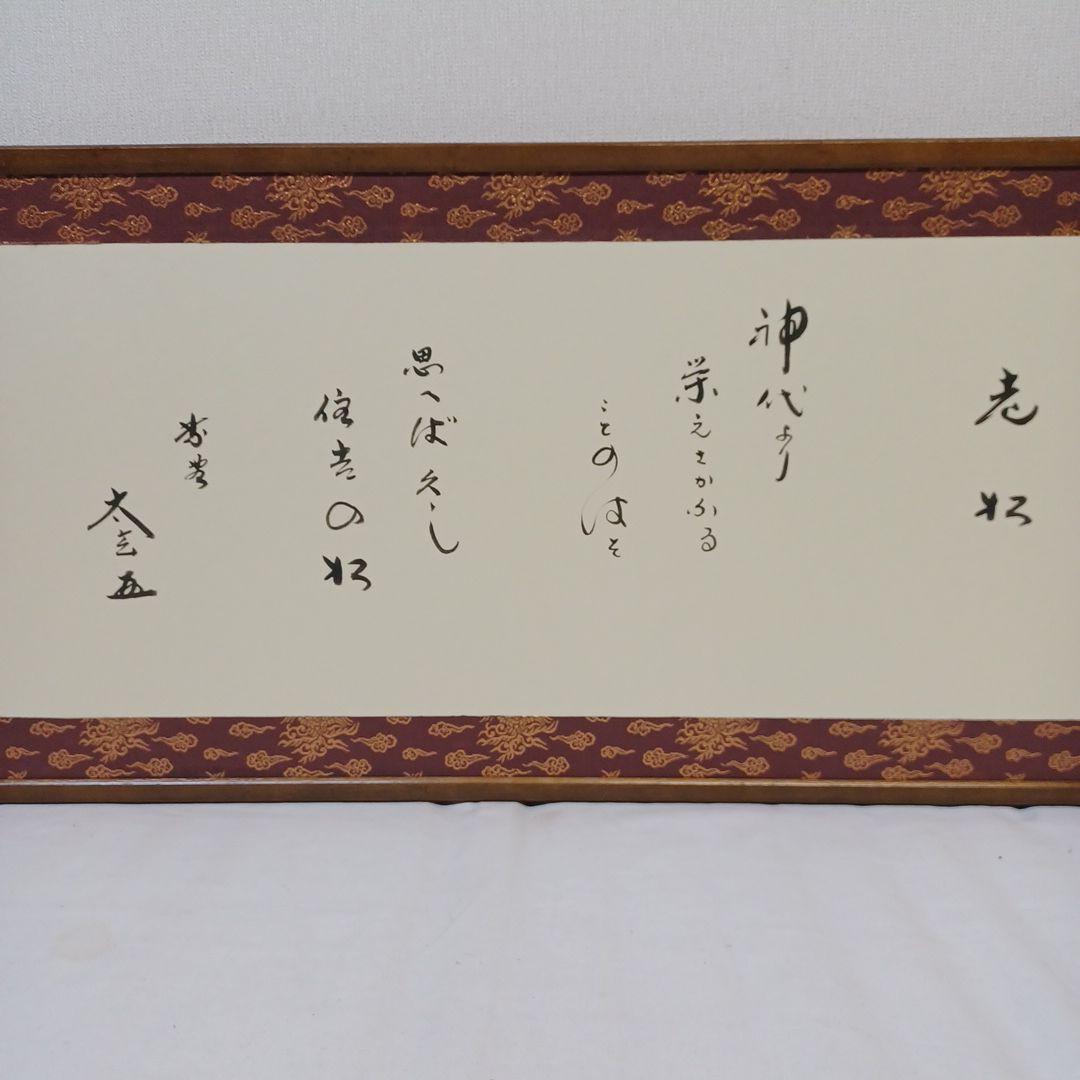 老松
神代より
栄えさかふる
ことのはそ
思へば久し
住吉の松